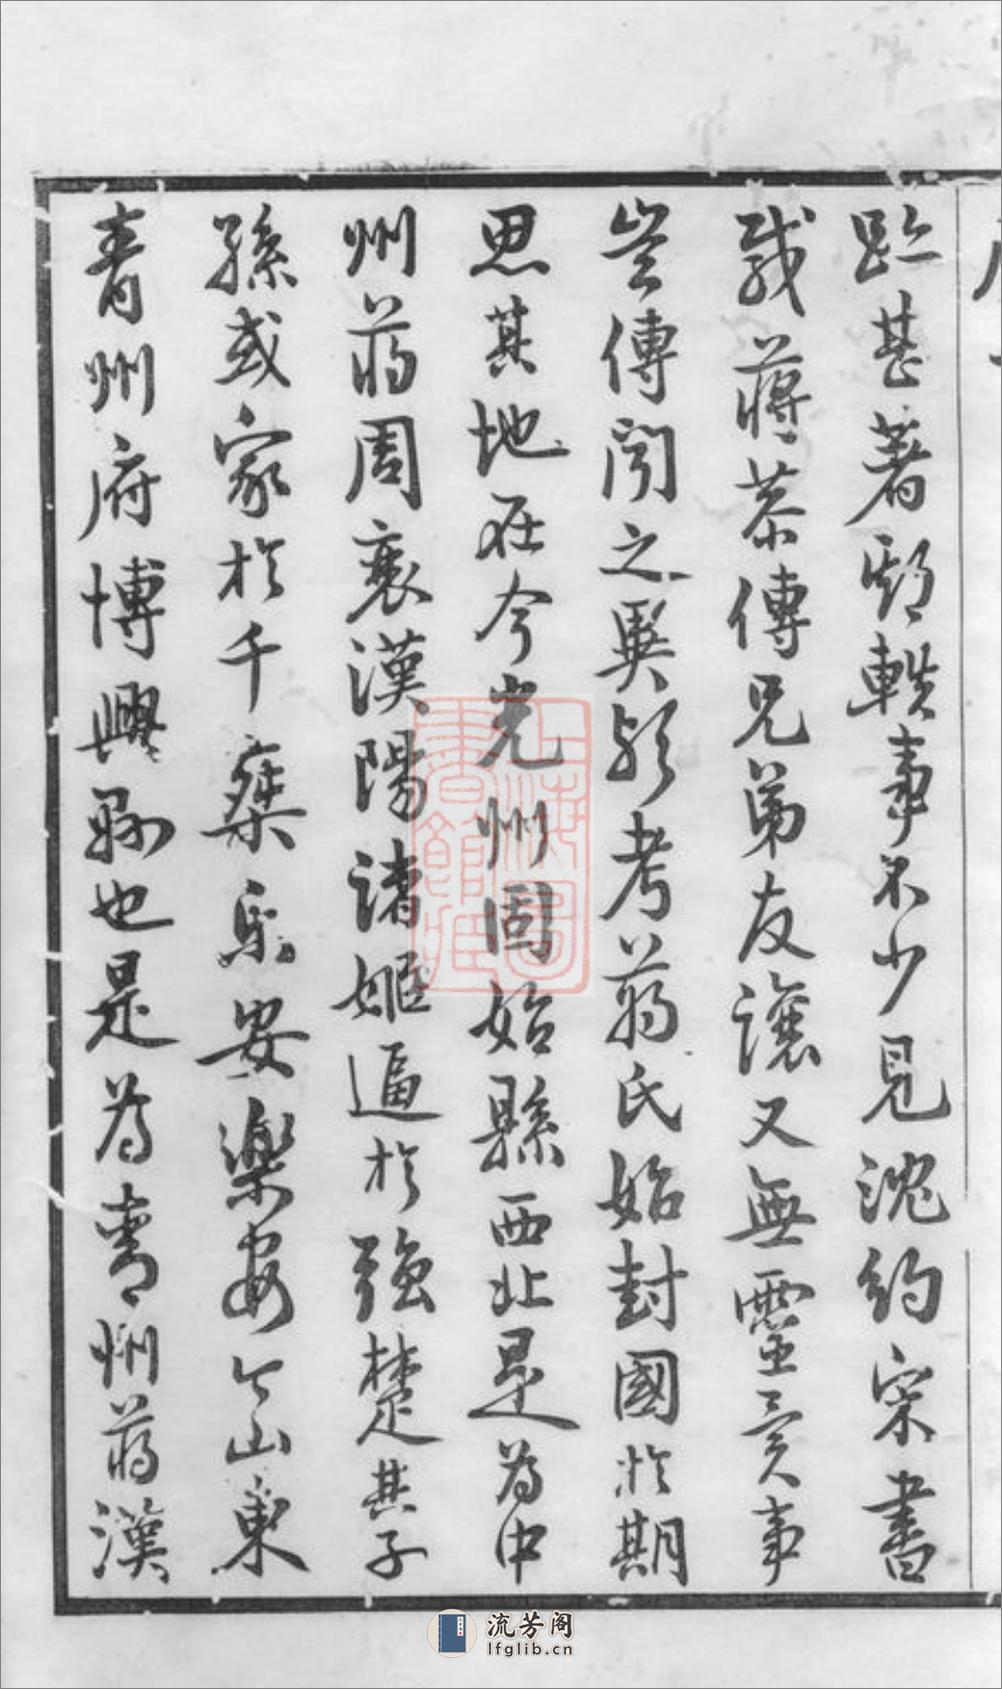 跡甚著顧軼事不少見沈約宋書
載蔣恭傳兄弟友讓又無靈異事
豈傳聞之異歟考蔣氏始封國於期
思其地在今光州固始縣西北是為中
州蔣周衰漢陽諸姬逼於強楚其子
孫或家於千乘乐安樂安今山東
青州府博興縣也是為青州蔣漢
上海圖書館藏
流芳阁
lfglib.cn